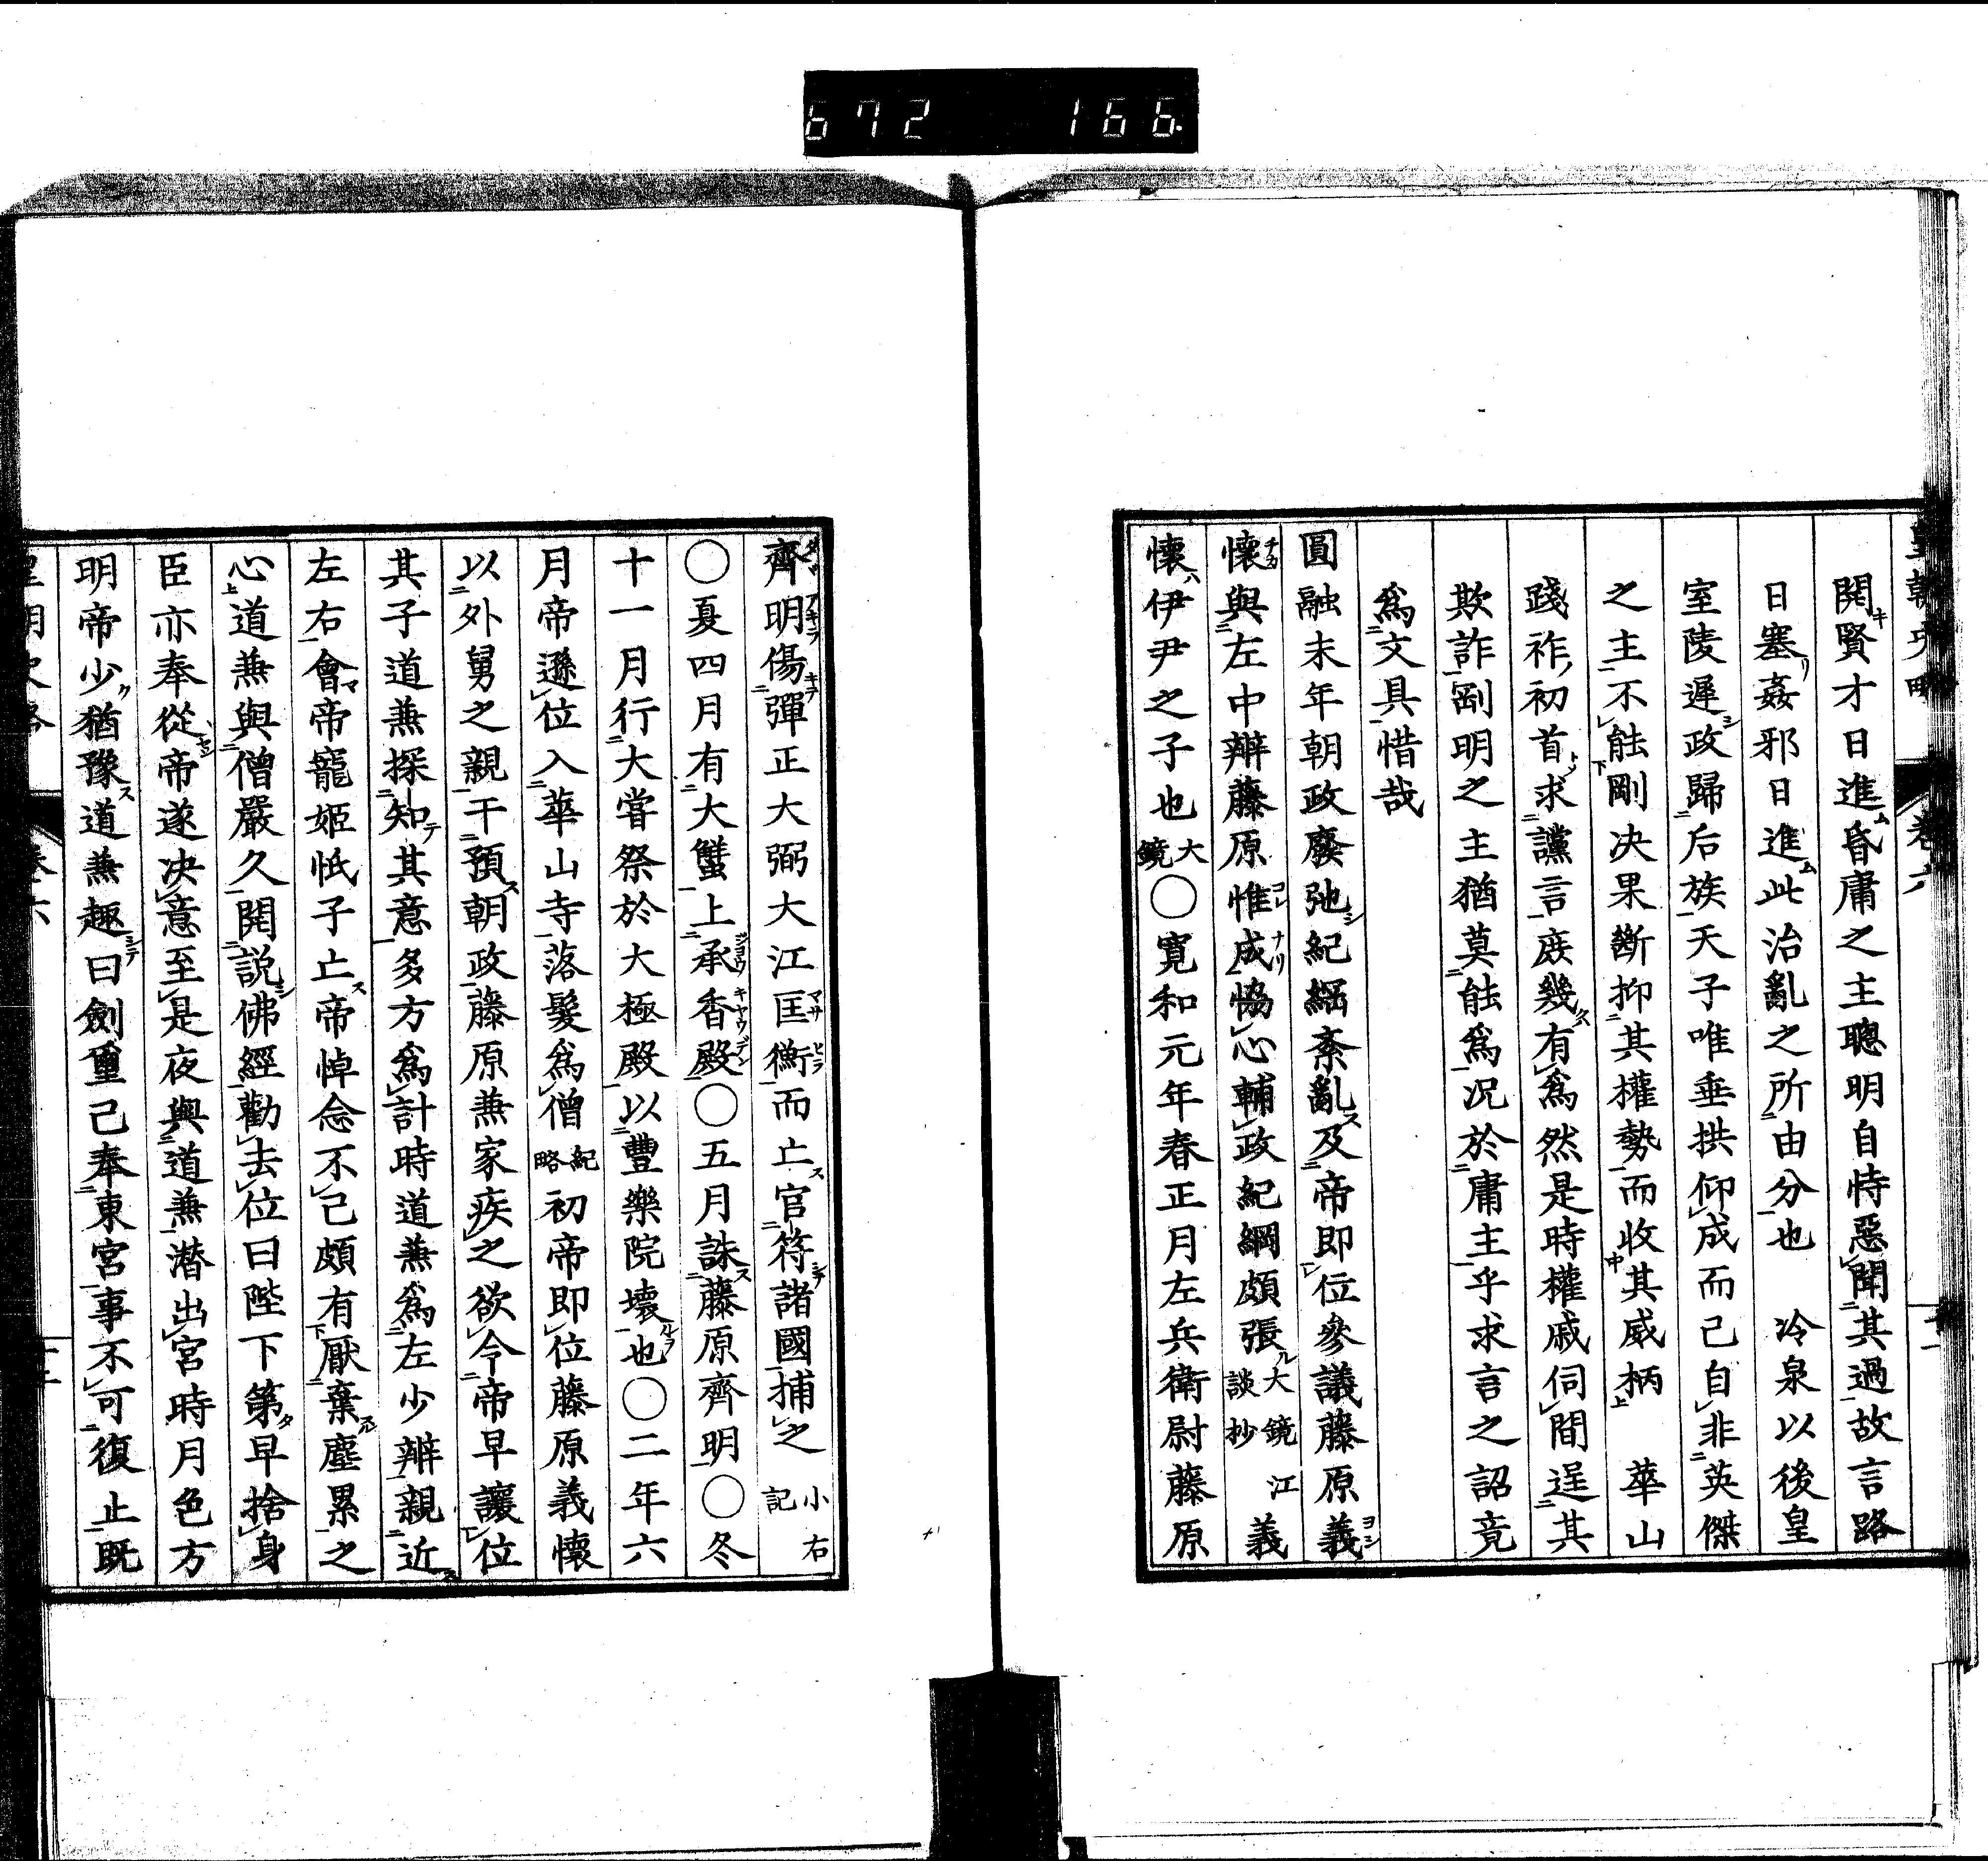 672 166
開賢才日進昏庸之主聰明自恃惡聞其過故言路
日塞姦邪日進此治亂之所由分也　冷泉以後皇
室陵遲政歸后族天子唯垂拱仰成而已自非英傑
之主不能剛决果斷抑其權勢而收其威柄　華山
踐祚初首求讜言庶幾有爲然是時權戚伺間逞其
欺詐剛明之主猶莫能爲况於庸主乎求言之詔竟
爲文具惜哉
圓融末年朝政廢弛紀綱紊亂及帝即位參議藤原義
懷與左中辨藤原惟成恊心輔政紀綱頗張大鏡江談抄義
懷伊尹之子也大鏡〇寬和元年春正月左兵衛尉藤原
齊明傷彈正大弼大江匡衡而亡官符諸國捕之小右記
〇夏四月有大蟹上承香殿〇五月誅藤原齊明〇冬
十一月行大嘗祭於大極殿以豐樂院壞也〇二年六
月帝遜位入華山寺落髮爲僧紀略初帝即位藤原義懷
以外舅之親干預朝政藤原兼家疾之欲令帝早讓位
其子道兼探知其意多方爲計時道兼爲左少辨親近
左右會帝寵姬忯子亡帝悼念不已頗有厭棄塵累之
心道兼與僧嚴久開説佛經勸去位曰陛下第早捨身
臣亦奉從帝遂决意至是夜與道兼潜出宮時月色方
明帝少猶豫道兼趣曰劍璽已奉東宮事不可復止既